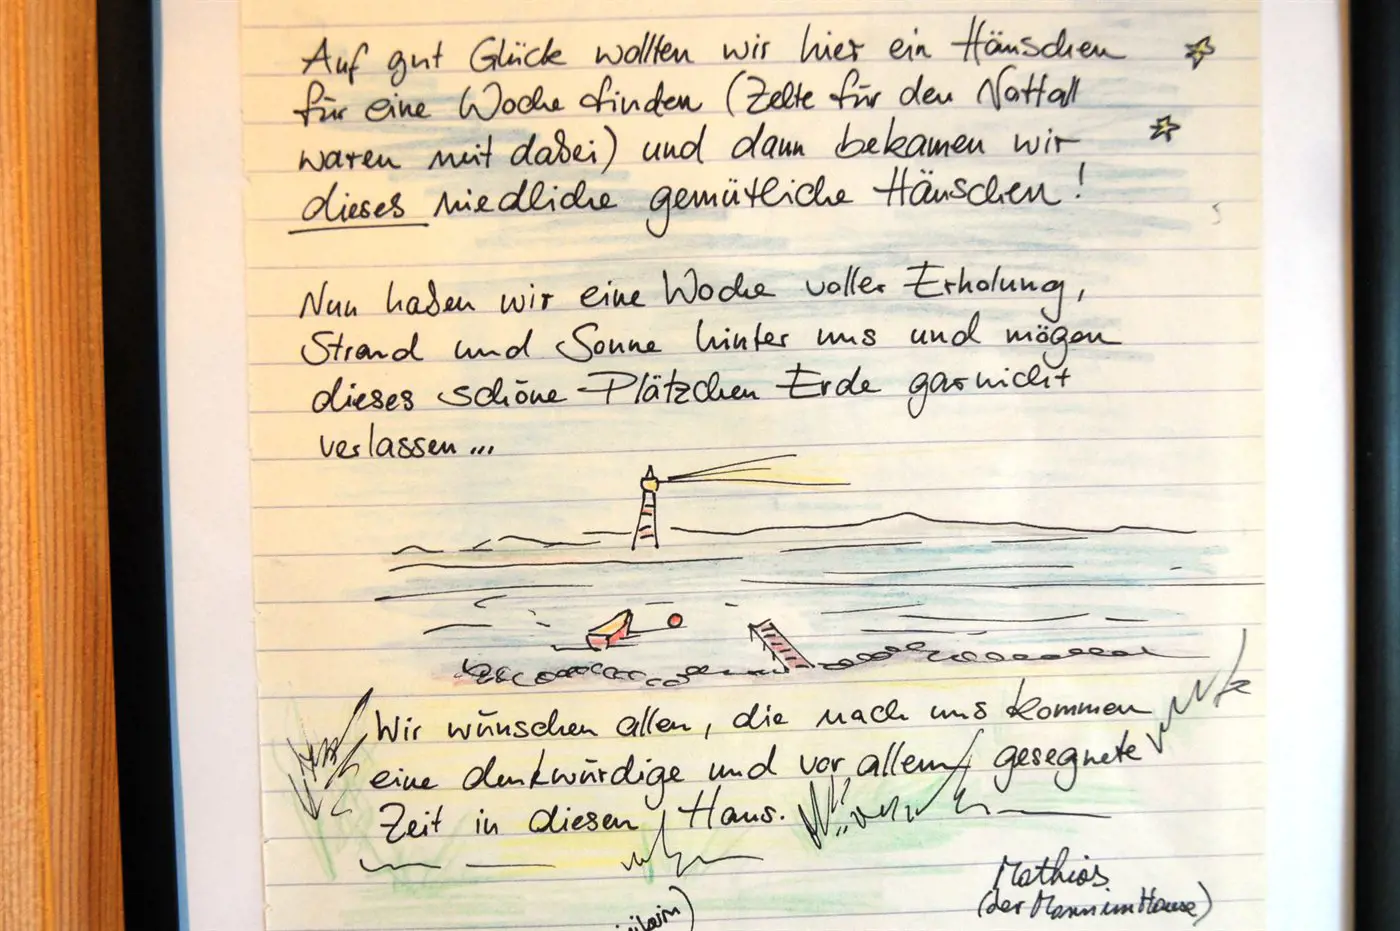 Auf gut Glück wollten wir hier ein Häuschen
für eine Woche finden (Zelte für den Notfall
waren mit dabei) und dann bekamen wir
dieses niedliche gemütliche Häuschen!
Nun haben wir eine Woche voller Erholung,
Strand und Sonne hinter uns und mögen
dieses schöne Plätzchen Erde garnicht
verlassen...
Wir wünschen allen, die nach uns kommen
eine denkwürdige und vor allem gesegnete
Zeit in diesem Haus.
Mathias
(der Mann im Hause)